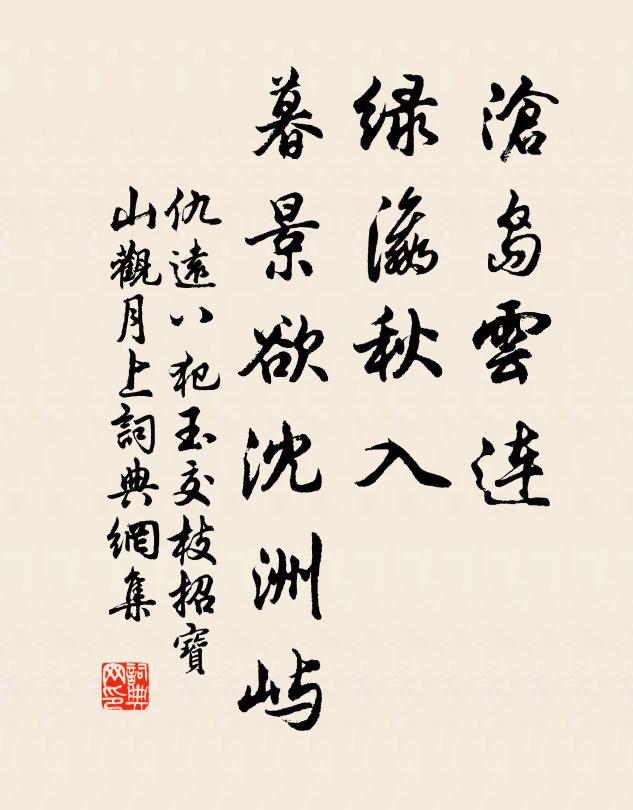 滄島雲連
緑瀛秋入
暮景欲沈洲屿
仇遠八犯玉交枝招寶
山觀月上詞典網集
詞典网印